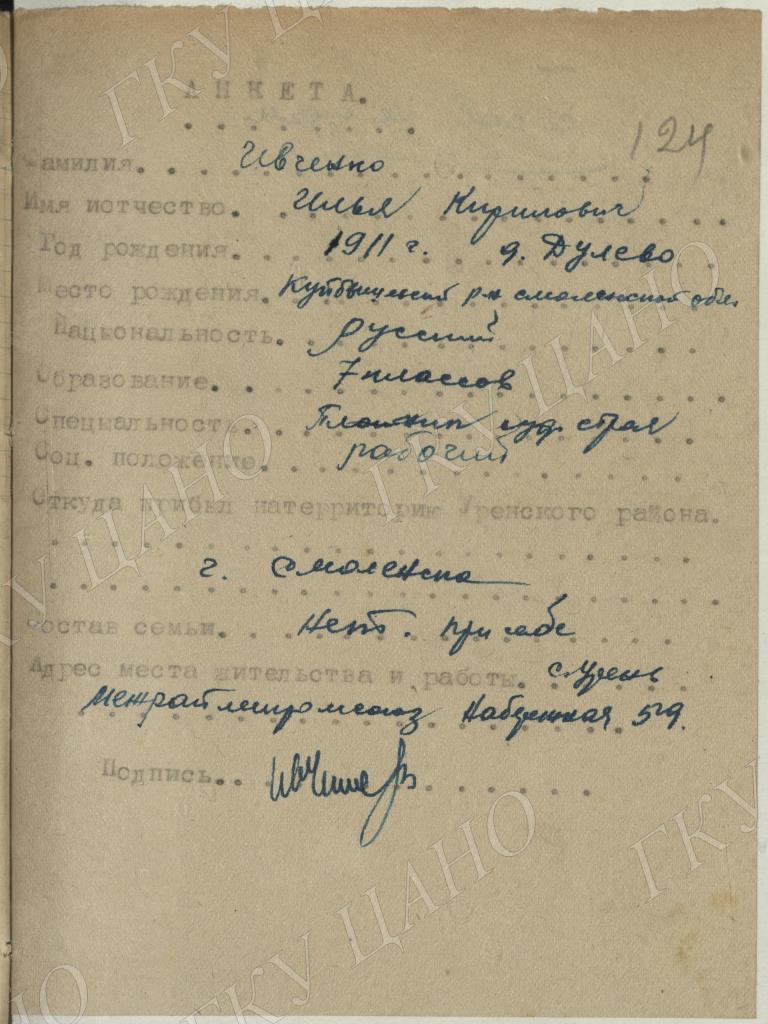 АНКЕТА.
124
Фамилия. Ивченко
Имя иотчество. Илья Кирилович
Год рождения. 1911 г. д. Дулево
Место рождения. Куйбышевский р-н смоленской обл
Национальность. русский
Образование. 7 классов
Специальность. Плотник суд. строя
Соц. положение. рабочий
Откуда прибыл натерриторию Уренского района.
г. Смоленска
Состав семьи. Нет. при себе
Адрес места жительства и работы. с. Урень
Межрайлеспромсоюз Набережная 59.
Подпись..
ГКУ ЦАНО